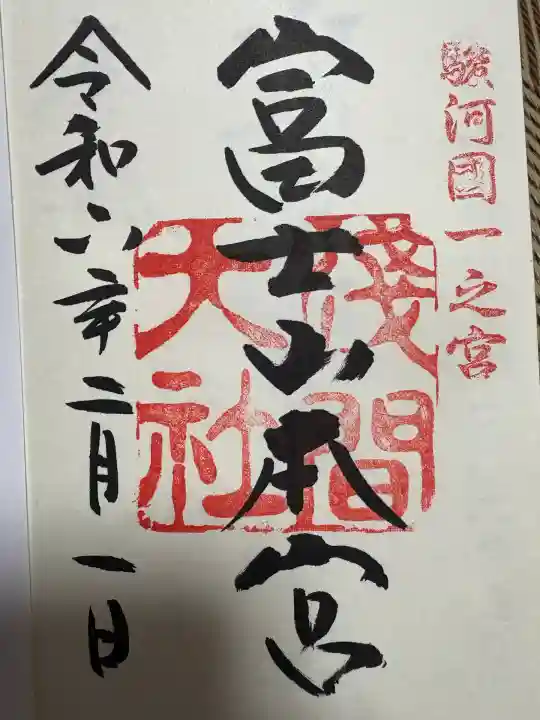 駿河国一之宮
富士山本宮
淺間大社
令和六年二月一日